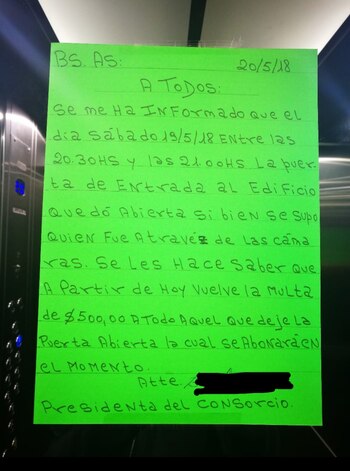 BS. AS: 20/5/18
A TODOS:
Se me HA INFORMADO que el
día Sábado 19/5/18 ENtre las
20:30HS y las 21:00HS La puer-
ta de ENtrada AL EdiFicio
Quedó Abierta si bien se supo
Quien Fue Atravéz de las cáma
ras. Se Les Hace Saber que
A Partir de Hoy Vuelve la Multa
de $500,00 A Todo Aquel Que deje La
Puerta Abierta la cual se AbonaráEN
el MOMENTO.
Atte.
Presidenta del CONSORCIO.